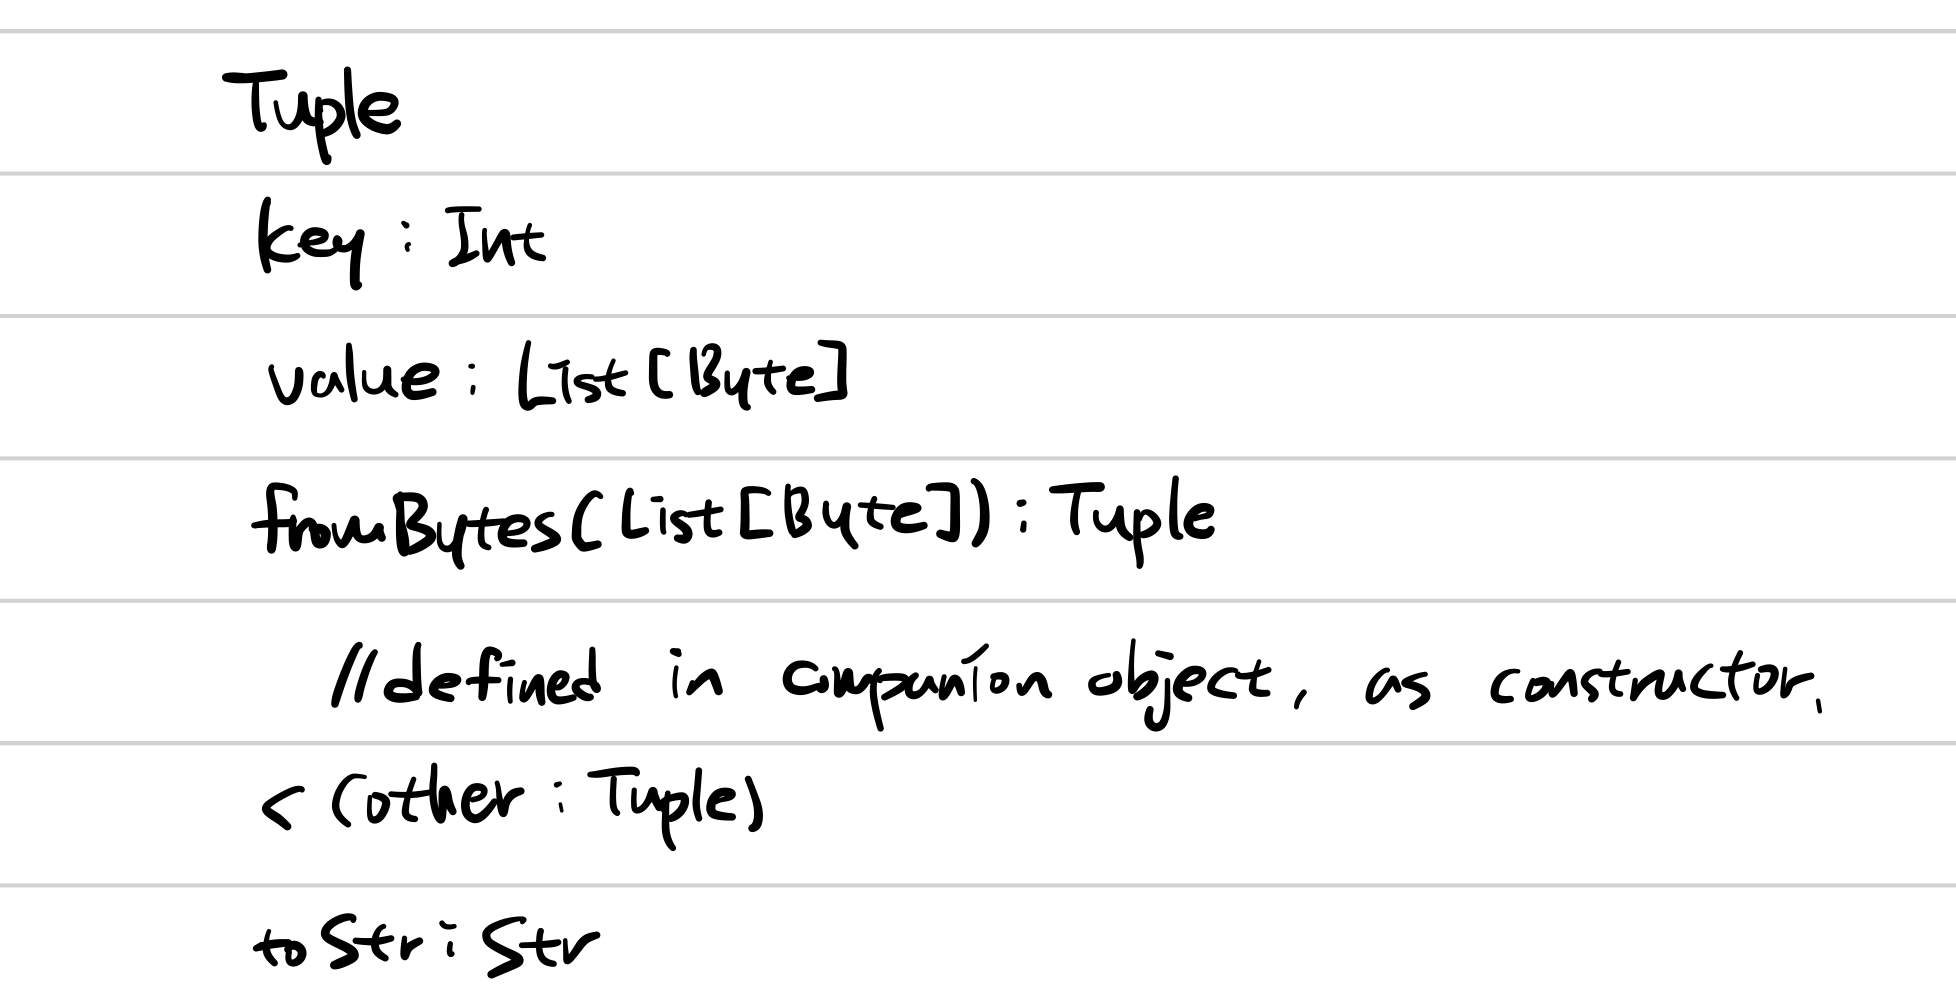 Tuple
key : Int
value : List [Byte]
fromBytes(List[Byte]) : Tuple
//defined in companion object, as constructor,
< (other : Tuple)
toStr : Str